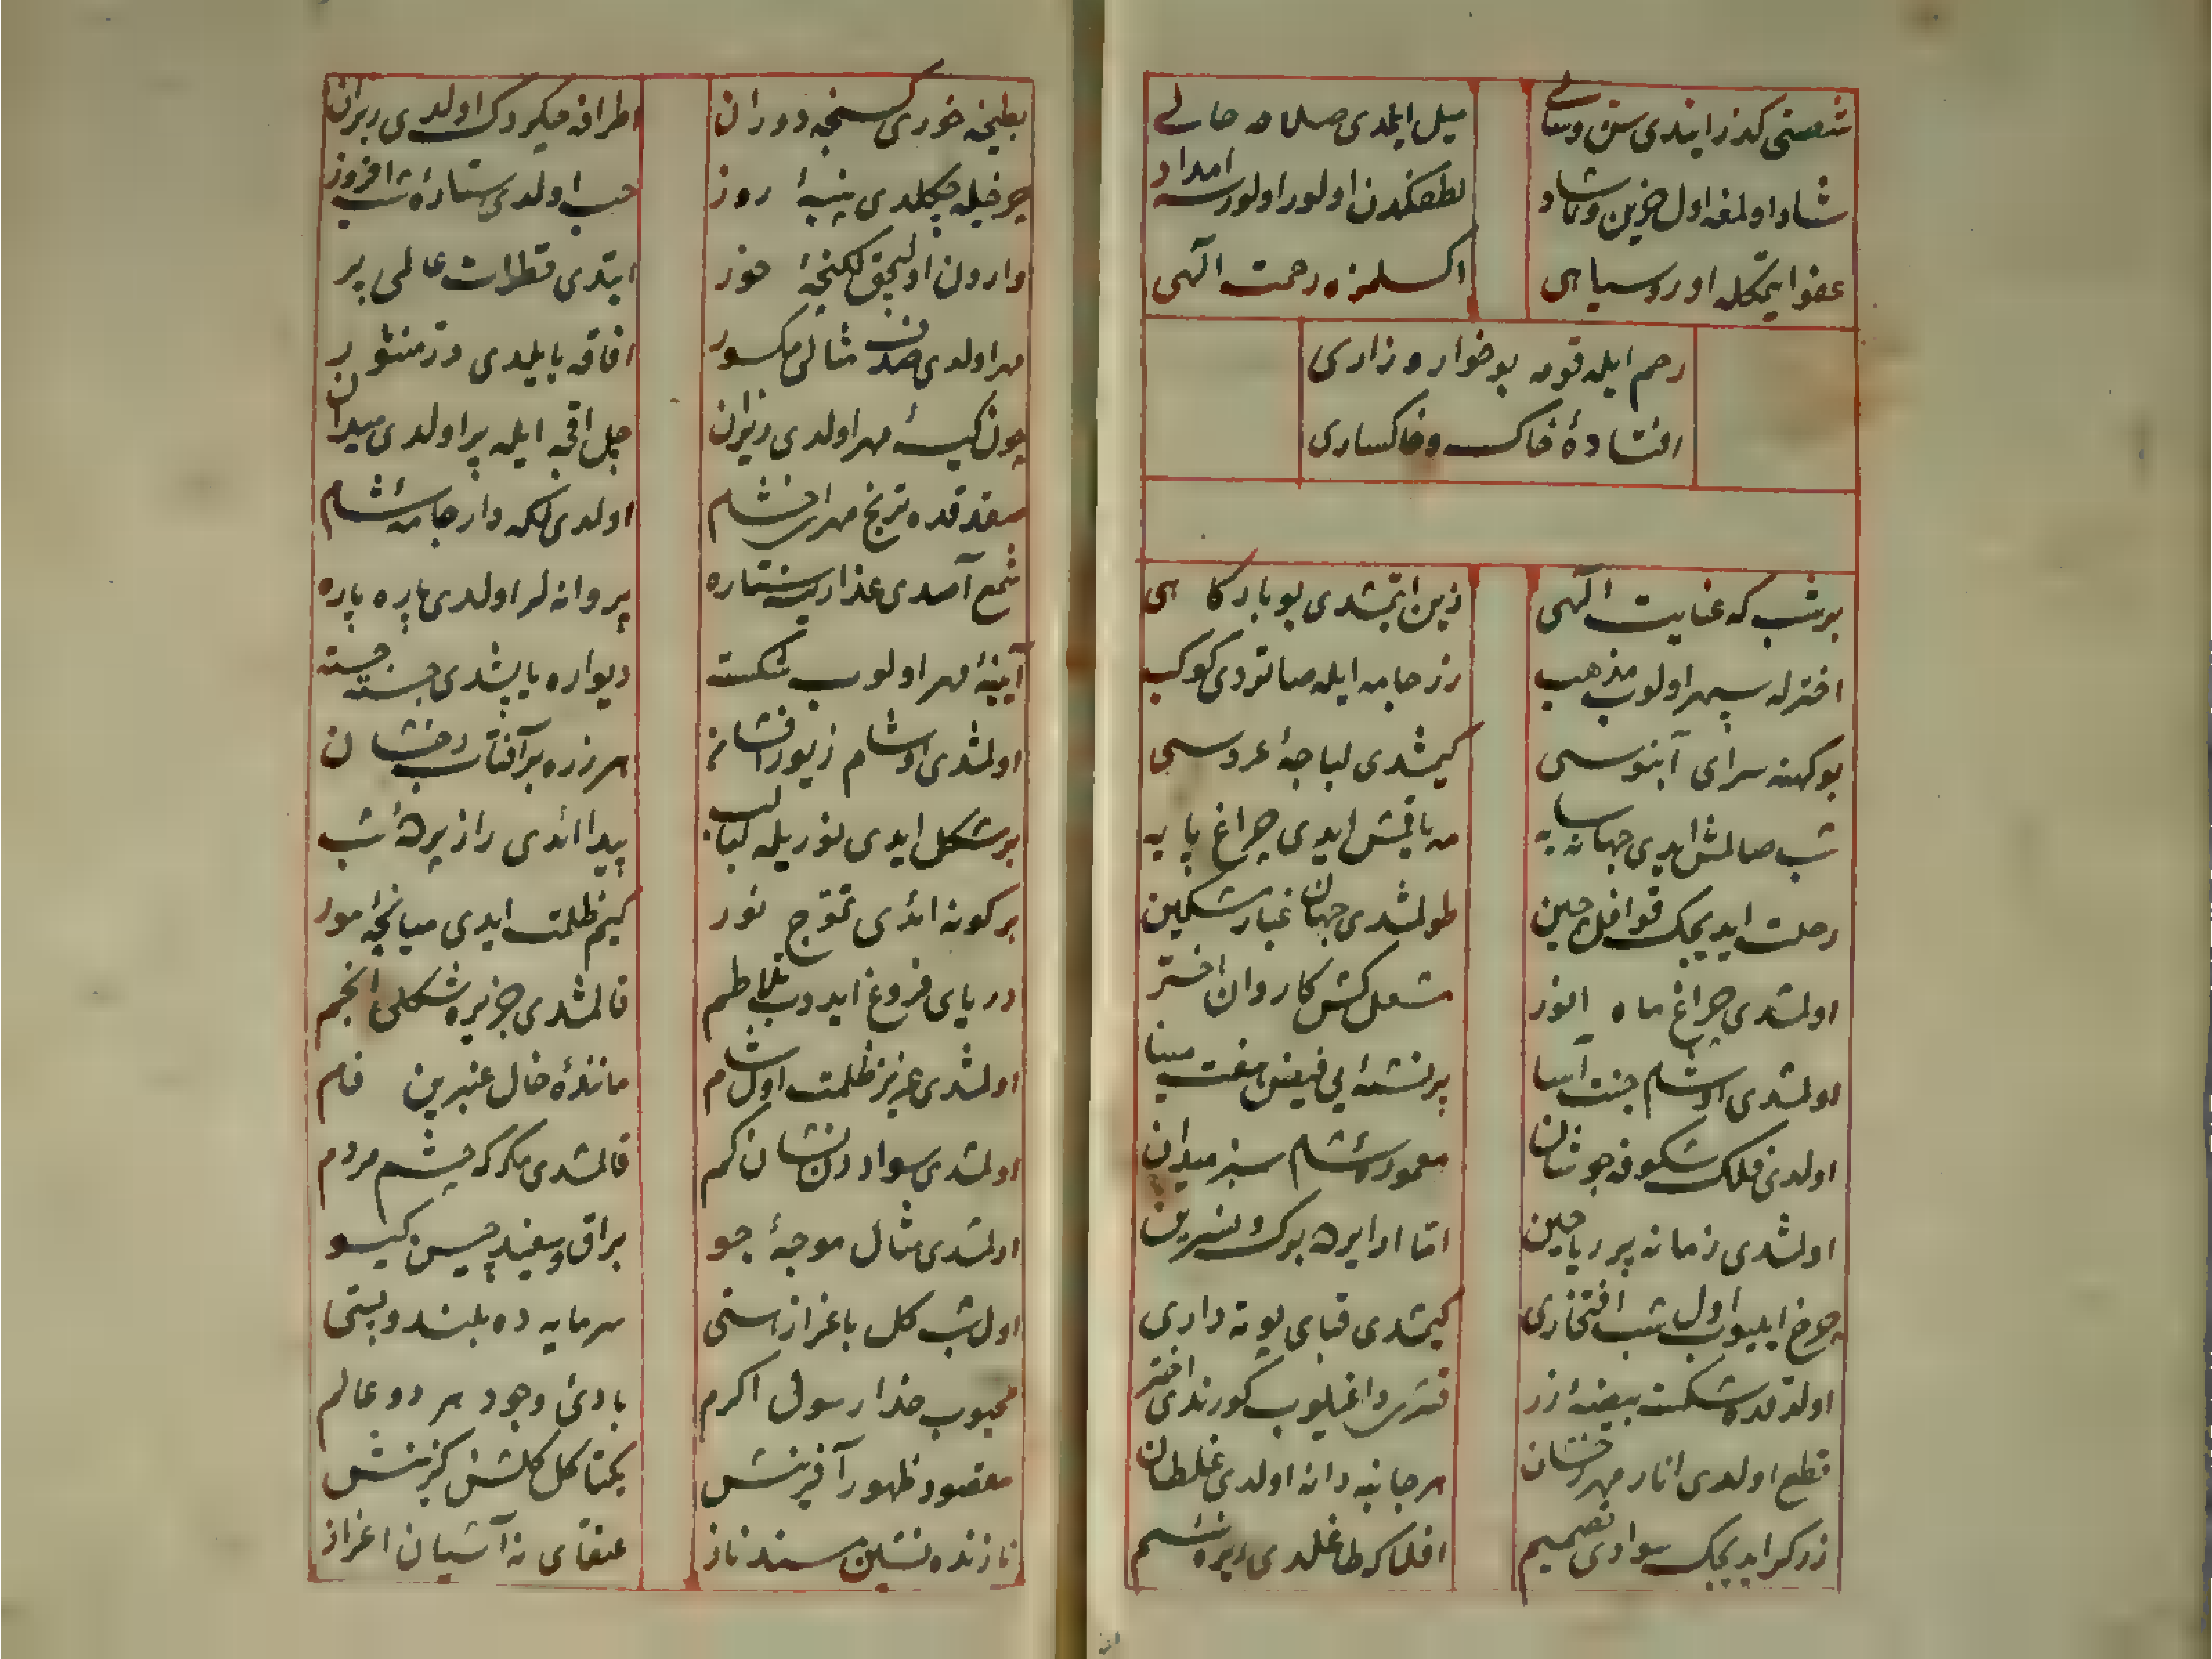 شصتی کذر ایتدی سن و سالی
میل ایلمدی صلاحه حالی
شاد اولمغه اول حزین و ناشاد
لطفکدن اولور اولورسه امداد
عفو ایتمکله او روسیاهی
اکسلمز ه رحمت الهی
رحم ایله قومه بو خوار و زاری
افتادهٔ خاک و خاکساری
بر شب که عنایت الهی
زین ایتمشدی بو بارکاهی
اخترله سپهر اولوب مذهب
زر جامه ایله صاتردی کوکب
بو کهنه سرای آبنوسی
کیمشدی لباجهٔ عروسی
شب صالمش ایدی جهانه سایه
مه یاقمش ایدی چراغ پایه
رحلت ایدیجک قوافل چین
طولمشدی جهان غبار مشکین
اولمشدی چراغ ماه انور
مشعل کش کاروان اختر
اولمشدی او شام جنت آسا
پر نشئهٔ بی فیض هفت مینا
اولدی فلک شکوفه جوشان
معمورهٔ شام سبز میدان
اولمشدی زمانه پر ریاحین
اتا ارایره برک و نسرین
چرخ ایلیوب اول شب افتخاری
کیمشدی قبای بوته داری
اولدقده شکست بیضهٔ زر
قشری داغیلوب کورندی اختر
قطع اولدی انار مهر رخشان
هر جانبه دانه اولدی غلطان
زرکر ایدیجک سوادی تصمیم
افلاکه طاغلدی ریزهٔ سیم
بطیخه خوری کسنجه دوران
اطرافه چکردک اولدی ریزان
چرخیله چکلدی پنبهٔ روز
حب اولدی ستارهٔ شب افروز
وارون اولیجق لکنچهٔ خور
ایتدی قطرات عالمی پر
مهر اولدی صدف مثالی مکسور
افاقه یایلدی در منثور
چون کیسهٔ مهر اولدی ریزان
چل اقچه ایله پر اولدی میدان
صقدقده ترنج مهری اخشام
اولدی لکه دار جامهٔ شام
شمع آصدی عذارینه ستاره
پروانه لر اولدی پاره پاره
آیینهٔ مهر اولوب شکسته
دیواره یاپشدی جسته جسته
اولمشدی او شام زیور افشان
هر ذره بر آفتاب رخشان
بر شکل ایدی نوریله لبالب
پیدا ائدی راز پردهٔ شب
بر کونه ائدی تموج نور
کیم ظلمت ایدی میانجهٔ مور
دریای فروغ ایدوب تلاطم
قالمشدی جزیره شکلی انجم
اولمشدی عزیز ظلمت اول شام
مانندهٔ خال عنبرین فام
اولمشدی سواددن نشان کم
قالمشدی مکر که چشم مردم
اولمشدی مثال موجهٔ جو
براق و سفید چین کیسو
اول شب کل باغ راستی
سرمایه ده بلند و پستی
محبوب خدا رسول اکرم
بادئ وجود هر دو عالم
مقصود ظهور آفرینش
یکتا کل کلشن کزینش
نازنده نشین مسند ناز
عنقای نه آشیان اعزاز